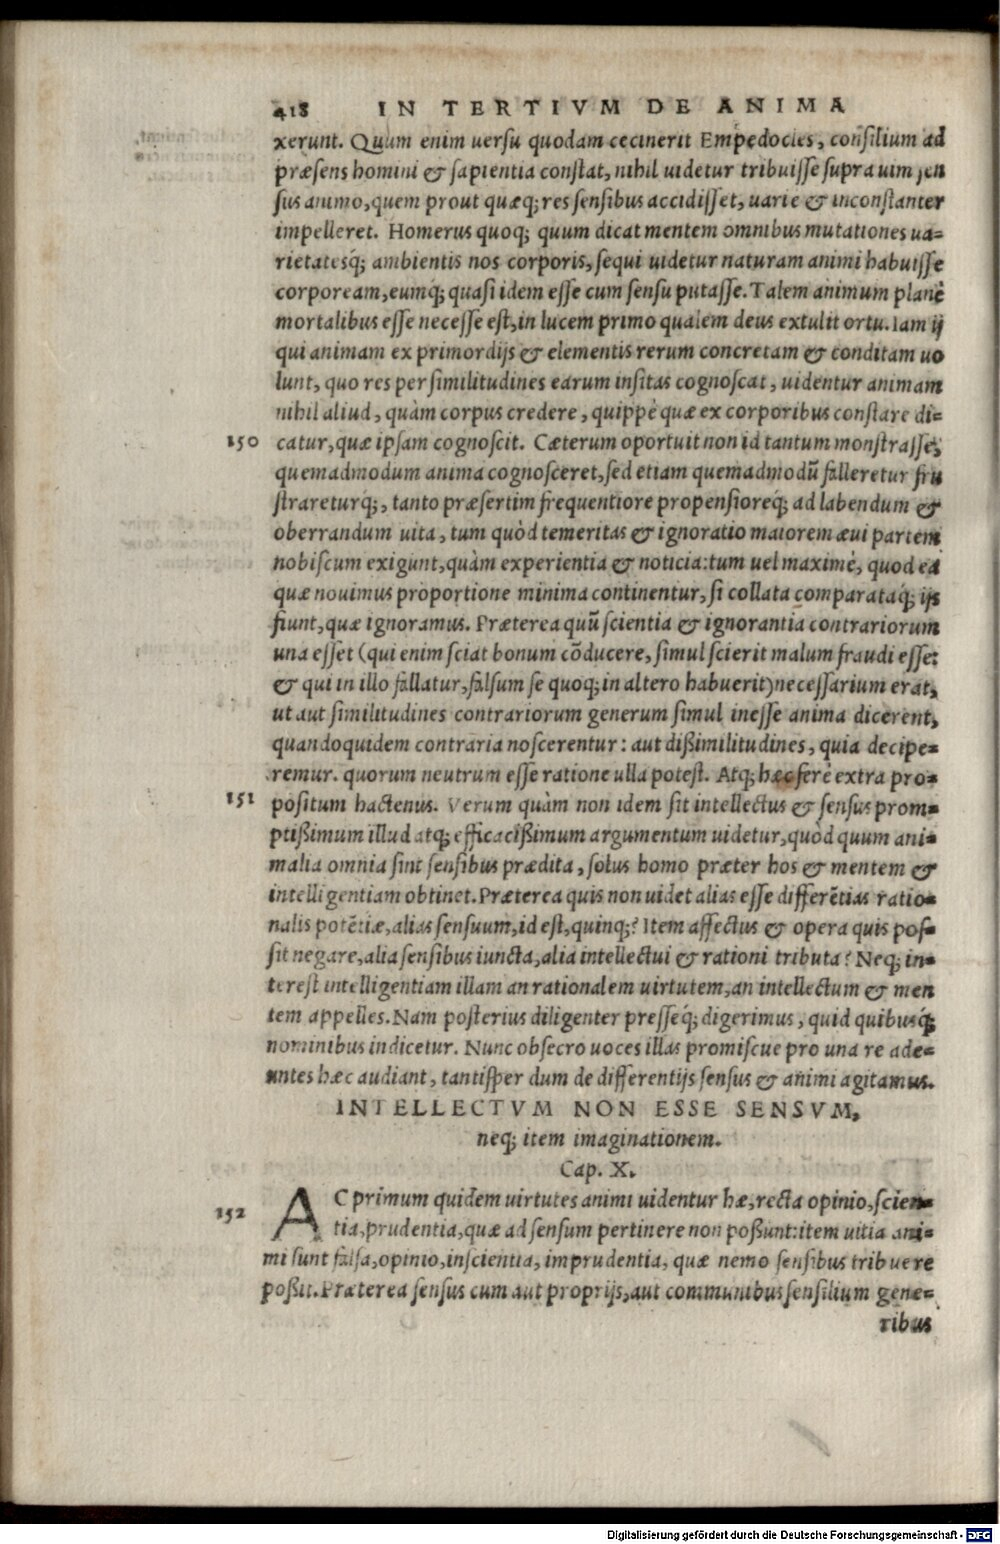 418 IN TERTIVM DE ANIMA
xerunt. Quum enim uersu quodam cecinerit Empedocles, consilium ad
præsens homini & sapientia constat, nihil uidetur tribuisse supra uim sen
sus animo, quem prout quæq; res sensibus accidisset, uarie & inconstanter
impelleret. Homerus quoq; quum dicat mentem omnibus mutationes ua=
rietatesq́; ambientis nos corporis, sequi uidetur naturam animi habuisse
corpoream, eumq; quasi idem esse cum sensu putasse. Talem animum planè
mortalibus esse necesse est, in lucem primo qualem deus extulit ortu. Iam ij
qui animam ex primordijs & elementis rerum concretam & conditam uo
lunt, quo res per similitudines earum insitas cognoscat, uidentur animam
nihil aliud, quàm corpus credere, quippè quæ ex corporibus constare di=
150 catur, quæ ipsam cognoscit. Cæterum oportuit non id tantum monstrasse,
quemadmodum anima cognosceret, sed etiam quemadmodū falleretur fru
straretur q;, tanto præsertim frequentiore propensioreq́; ad labendum &
oberrandum uita, tum quòd temeritas & ignoratio maiorem æui partem
nobiscum exigunt, quàm experientia & noticia: tum uel maximè, quod ea
quæ nouimus proportione minima continentur, si collata comparataq́; ijs
fiunt, quæ ignoramus. Præterea quū scientia & ignorantia contrariorum
una esset (qui enim sciat bonum cōducere, simul scierit malum fraudi esse:
& qui in illo fallatur, falsum se quoq; in altero habuerit) necessarium erat,
ut aut similitudines contrariorum generum simul inesse anima dicerent,
quandoquidem contraria noscerentur: aut dißimilitudines, quia decipe=
remur. quorum neutrum esse ratione ulla potest. Atq; hæc ferè extra pro=
151 positum hactenus. Verum quàm non idem sit intellectus & sensus prom=
ptißimum illud atq; efficacißimum argumentum uidetur, quòd quum ani=
malia omnia sint sensibus prædita, solus homo præter hos & mentem &
intelligentiam obtinet. Præterea quis non uidet alias esse differētias ratio=
nalis potētiæ, alias sensuum, id est, quinq;? Item affectus & opera quis pos=
sit negare, alia sensibus iuncta, alia intellectui & rationi tributa? Neq; in=
terest intelligentiam illam an rationalem uirtutem, an intellectum & men
tem appelles. Nam posterius diligenter presseq́; digerimus, quid quibusq́;
nominibus indicetur. Nunc obsecro uoces illas promiscue pro una re ade=
untes hæc audiant, tantisper dum de differentijs sensus & animi agitamus.
INTELLECTVM NON ESSE SENSVM,
neq; item imaginationem.
Cap. X.
152 AC primum quidem uirtutes animi uidentur hæ, recta opinio, scien=
tia, prudentia, quæ ad sensum pertinere non possunt: item uitia ani=
mi sunt falsa, opinio, inscientia, imprudentia, quæ nemo sensibus tribuere
poßit. Præterea sensus cum aut proprijs, aut communibus sensilium gene=
ribus
Digitalisierung gefördert durch die Deutsche Forschungsgemeinschaft - DFG